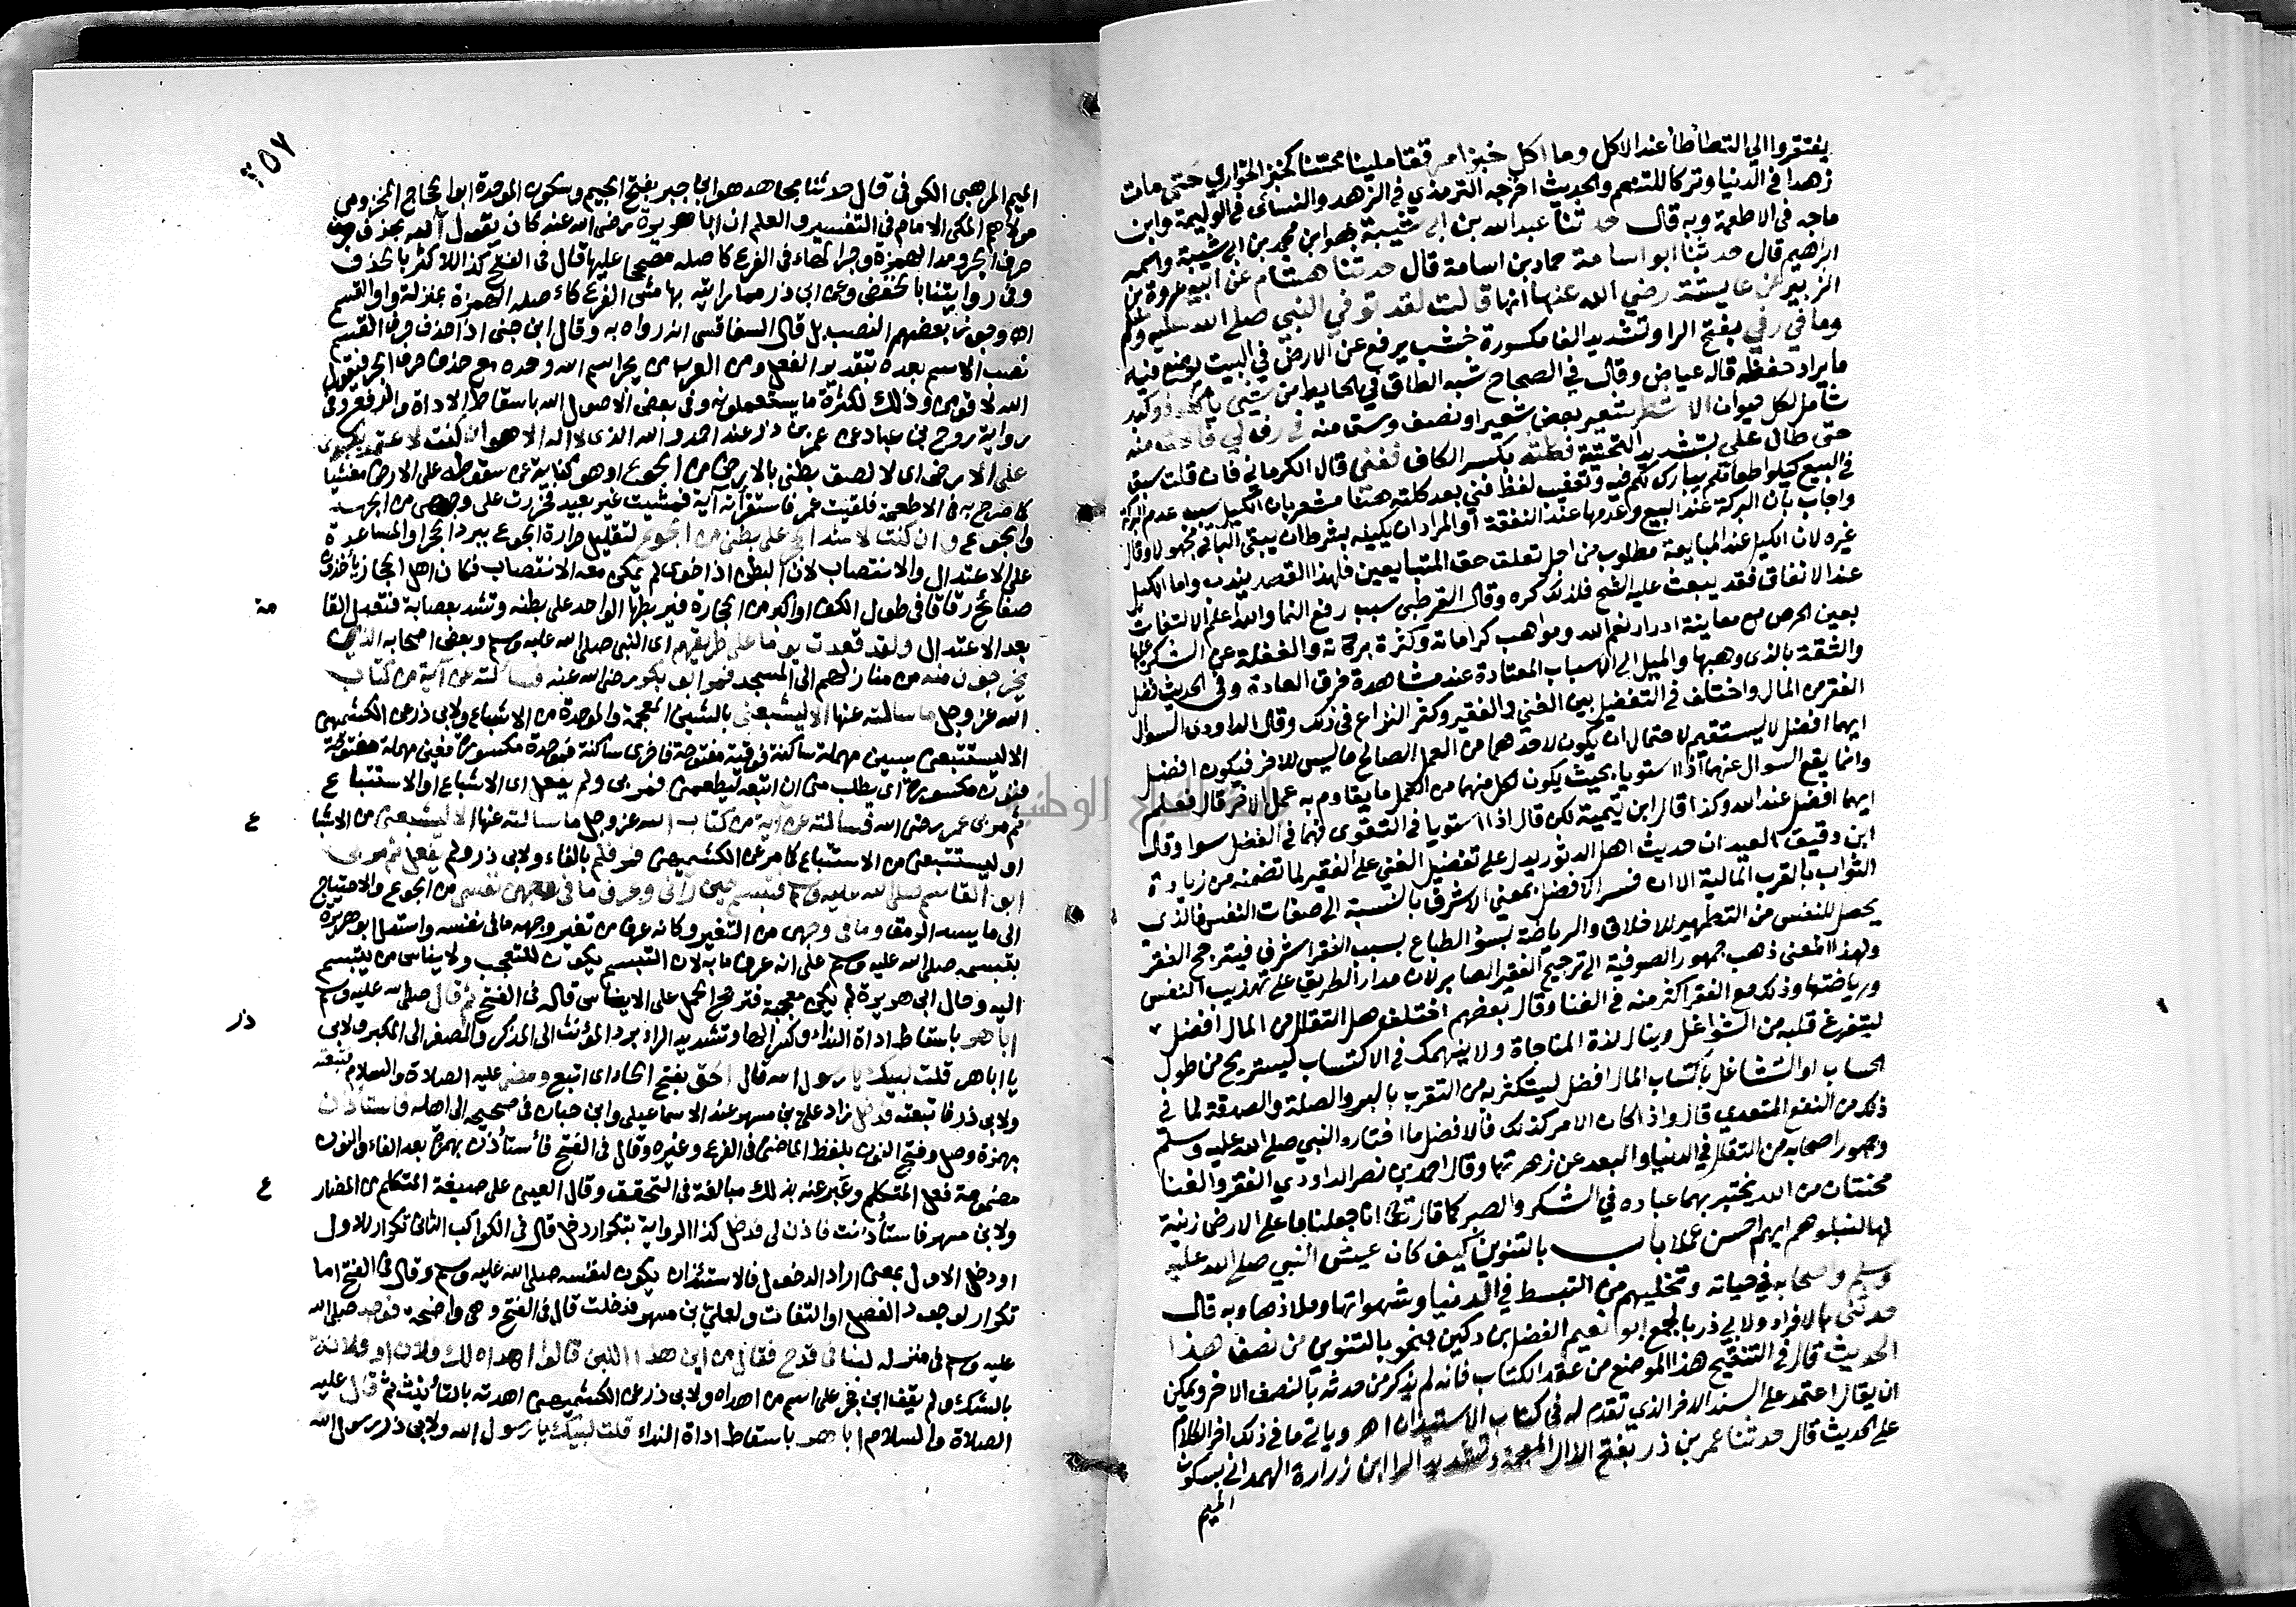 يفتقروا الى التطأطأ عند الاكل وما اكل خبزا مرققا ملينا محسنا كخبز الحواري حتى مات
زهدا في الدنيا وتركا للتنعم والحديث اخرجه الترمذي في الزهد والنسائي في الوليمة وابن
ماجه في الاطعمة وبه قال حدثنا عبد الله بن ابي شيبة هو ابن محمد بن ابي شيبة واسمه
ابراهيم قال حدثنا ابو اسامة حماد بن اسامة قال حدثنا هشام عن ابيه عروة بن
الزبير عن عايشة رضي الله عنها انها قالت لقد توفي النبي صلى الله عليه وسلم
وما في رفي بفتح الرا وتشديد الفا مكسورة خشب يرفع عن الارض في البيت يوضع فيه
ما يراد حفظه قاله عياض وقال في الصحاح شبه الطاق في الحايط من شيئ ياكله ذو كبد
شامل لكل حيوان الا شطر شعير بعض شعير او نصف وسق منه في رف لي فاكلت منه
حتى طال علي بتشديد التحتية فكلته بكسر الكاف ففني قال الكرماني فان قلت سبق
في البيع كيلوا طعامكم يبارك لكم فيه وتعقيب لفظ فني بعد كلته هنا مشعر بان الكيل سبب عدم البركة
واجاب بان البركة عند البيع وعدمها عند النفقة او المراد ان يكيله بشرط ان يبقى الباقي مجهولا وقال
غيره لان الكيل عند المبايعة مطلوب من اجل تعلق حق المتبايعين فلهذا القصد يندب واما الكيل
عند الانفاق فقد يبعث عليه الشح فلذلك كره وقال القرطبي سبب رفع النما والله اعلم الالتفات
بعين الحرص مع معاينة ادرار نعم الله ومواهب كراماته وكثرة بركاته والغفلة عن الشكر عليها
والثقة بالذى وهبها والميل الى الاسباب المعتادة عند مشاهدة خرق العادة وفى الحديث فضل
الفقر من المال واختلف في التفضيل بين الغني والفقير وكثر النزاع في ذلك وقال الداودي السوال
ايهما افضل لا يستقيم لاحتمال ان يكون لاحدهما من العمل الصالح ما ليس للاخر فيكون افضل
وانما يقع السوال عنهما اذا استويا بحيث يكون لكل منهما من العمل ما يقاوم به عمل الاخر قال فعلم
ايهما افضل عند الله وكذا قال ابن تيمية لكن قال اذا استويا في التقوى فهما في الفضل سوا وقال
ابن دقيق العيد ان حديث اهل الدثور يدل على تفضيل الغني على الفقير لما تضمنه من زيادة
الثواب بالقرب المالية الا ان فسر الافضل بمعنى الاشرف بالنسبة الى صفات النفس فالذى
يحصل للنفس من التطهير للاخلاق والرياضة بسؤ الطباع بسبب الفقر اشرف فيترجح الفقر
ولهذا المعنى ذهب جمهور الصوفية الى ترجيح الفقير الصابر لان مدار الطريق على تهذيب النفس
ورياضتها وذلك مع الفقر اكثر منه في الغنا وقال بعضهم اختلف هل التقلل من المال افضل
ليتفرغ قلبه من الشواغل وينال لذة المناجاة ولا ينهمك في الاكتساب ليستريح من طول
الحساب او التشاغل باكتساب المال افضل ليستكثر به من التقرب بالبر والصلة والصدقة لما في
ذلك من النفع المتعدي قال واذا كان الامر كذلك فالافضل ما اختاره النبي صلى الله عليه وسلم
وجمهور اصحابه من التقلل في الدنيا والبعد عن زهرتها وقال احمد بن نصر الداودي الفقر والغنا
محنتان من الله يختبر بهما عباده في الشكر والصبر كما قال تعالى انا جعلنا ما على الارض زينة
لها لنبلوهم ايهم احسن عملا باب بالتنوين كيف كان عيش النبي صلى الله عليه
وسلم واصحابه في حياته وتخليهم من التبسط في الدنيا وشهواتها وملاذها وبه قال
حدثني بالافراد ولابي ذر بالجمع ابو نعيم الفضل بن دكين بنحو بالتنوين من نصف هذا
الحديث قال في التنقيح هذا الموضع من عقد الكتاب فانه لم يذكر من حدثه بالنصف الاخر ويمكن
ان يقال اعتمد على السند الاخر الذي تقدم له في كتاب الاستيذان اهـ وياتي ما في ذلك اخر الكلام
على الحديث قال حدثنا عمر بن ذر بفتح الذال المعجمة وتشديد الرا ابن زرارة الهمداني بسكون
الميم
٢٥٧
الميم المرهبى الكوفى قال حدثنا مجاهد هو ابن جبر بفتح الجيم وسكون الموحدة ابو الحجاج المخزومى
مولاهم المكى الامام فى التفسير والعلم ان ابا هريرة رضى الله عنه كان يقول آلله بحذف
حرف الجر ومد الهمزة وجر الهاء فى الفرع كاصله مصححا عليها قال فى الفتح كذا للاكثر بالحذف
وفى روايتنا بالخفض وعن ابى ذر مما رايته بهامش الفرع كاصله الهمزة بمنزلة واو القسم
اهـ وجوز بعضهم النصب بل قال السفاقسى انه رواه به وقال ابن جنى اذا حذف حرف القسم
نصب الاسم بعده بتقدير الفعل ومن العرب من يجر اسم الله وحده مع حذف حرف الجر فيقول
الله لاقومن وذلك لكثرة ما يستعملونه وفى بعض الاصول الله باسقاط الاداة والرفع وفى
رواية روح بن عبادة عن عمر بن ذر عند احمد والله الذى لا اله الا هو ان كنت لاعتمد بكبدى
على الارض اى لالصق بطنى بالارض من الجوع او هو كناية عن سقوطه على الارض مغشيا
كما صرح به فى الاطعمة فلقيت عمر فاستقرأته آية فمشيت غير بعيد فخررت على وجهى من الجهد
والجوع وان كنت لاشد الحجر على بطنى من الجوع لتقليل حرارة الجوع ببرد الحجر او المساعدة
على الاعتدال والانتصاب لان البطن اذا خوى لم يمكن معه الانتصاب فكان اهل الحجاز ياخذون
صفائح رقاقا فى طول الكف او اكبر من الحجارة فيربطها الواحد على بطنه وتشد بعصابة فتعدل القامة
بعد الاعتدال ولقد قعدت يوما على طريقهم اى النبى صلى الله عليه وسلم وبعض اصحابه الذين
يخرجون منه من منازلهم الى المسجد فمر ابو بكر رضى الله عنه فسالته عن آية من كتاب
الله عز وجل ما سالته عنها الا ليشبعنى بالشين المعجمة والموحدة من الاشباع ولابى ذر عن الكشميهنى
الا ليستتبعنى بسين مهملة ساكنة ففوقية مفتوحة فاخرى ساكنة فموحدة مكسورة فعين مهملة مفتوحة
فنون مكسورة اى يطلب منى ان اتبعه ليطعمنى فمر بى ولم يفعل اى الاشباع او الاستتباع
ثم مر بى عمر رضى الله فسالته عن آية من كتاب الله عز وجل ما سالته عنها الا ليشبعنى من الاشباع
او ليستتبعنى من الاستتباع كما مر عن الكشميهنى فمر فلم بالفاء ولابى ذر ولم يفعل ثم مر بى
ابو القاسم صلى الله عليه وسلم فتبسم حين رآنى وعرف ما فى نفسى من الجوع والاحتياج
الى ما يسد الرمق وما فى وجهى من التغير وكانه عرف من تغير وجهه ما فى نفسه واستدل ابو هريرة
بتبسمه صلى الله عليه وسلم على انه عرف ما به لان التبسم يكون للتعجب ولايناس من يتبسم
اليه وحال ابى هريرة لم يكن معجبة فترجح الحمل على الايناس قاله فى الفتح ثم قال صلى الله عليه وسلم
اباهر باسقاط اداة النداء وكسر الها وتشديد الراء برد المؤنث الى المذكر والمصغر الى المكبر ولابى ذر
يا اباهر قلت لبيك يا رسول الله قال الحق بفتح الحاء اى اتبع ومضى عليه الصلاة والسلام فتبعته
ولابى ذر فاتبعته فدخل زاد على بن مسهر عند الاسماعيلى وابن حبان فى صحيحه الى اهله فاستاذن
بهمزة وصل وفتح النون بلفظ الماضى فى الفرع وغيره وقال فى الفتح فأستأذن بهمزة بعد الفاء والنون
مضمومة فعل المتكلم وعبر عنه بذلك مبالغة فى التحقق وقال العينى على صيغة المتكلم من المضارع
ولابن مسهر فاستأذنت فاذن لى فدخل كذا الرواية بتكرار دخل قال فى الكواكب الثانى تكرار للاول
او دخل الاول بمعنى اراد الدخول فالاستئذان يكون لنفسه صلى الله عليه وسلم وقال فى الفتح اما
تكرار لوجود الفصل او التفات ولعلي بن مسهر فدخلت قال فى الفتح وهى واضحة فوجد صلى الله
عليه وسلم فى منزله لبنا فى قدح فقال من اين هذا اللبن قالوا اهداه لك فلان او فلانة
بالشك ولم يقف ابن حجر على اسم من اهداه ولابى ذر عن الكشميهنى اهدته بالتأنيث ثم قال عليه
الصلاة والسلام اباهر باسقاط اداة النداء قلت لبيك يا رسول الله ولابى ذر رسول الله